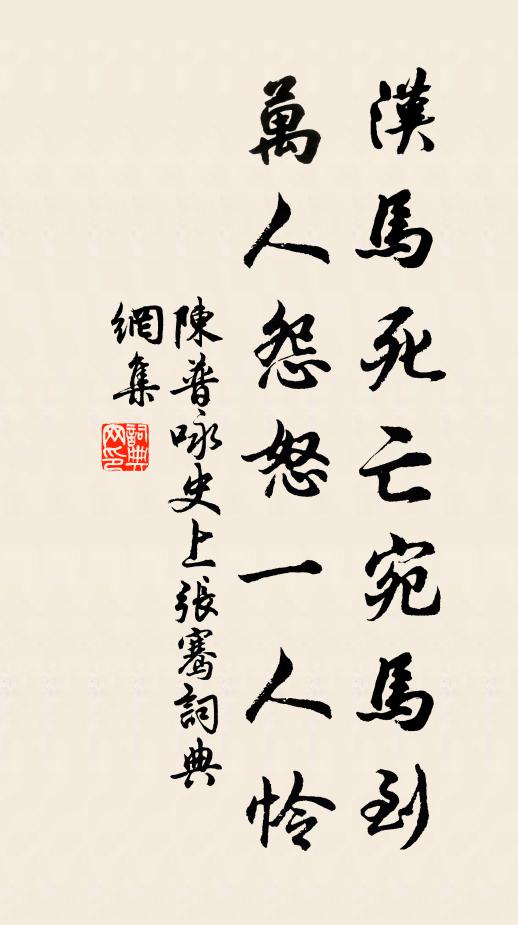 漢馬死亡宛馬到
萬人怨怒一人怜
陳普咏史上張騫詞典
網集
詞典
网印